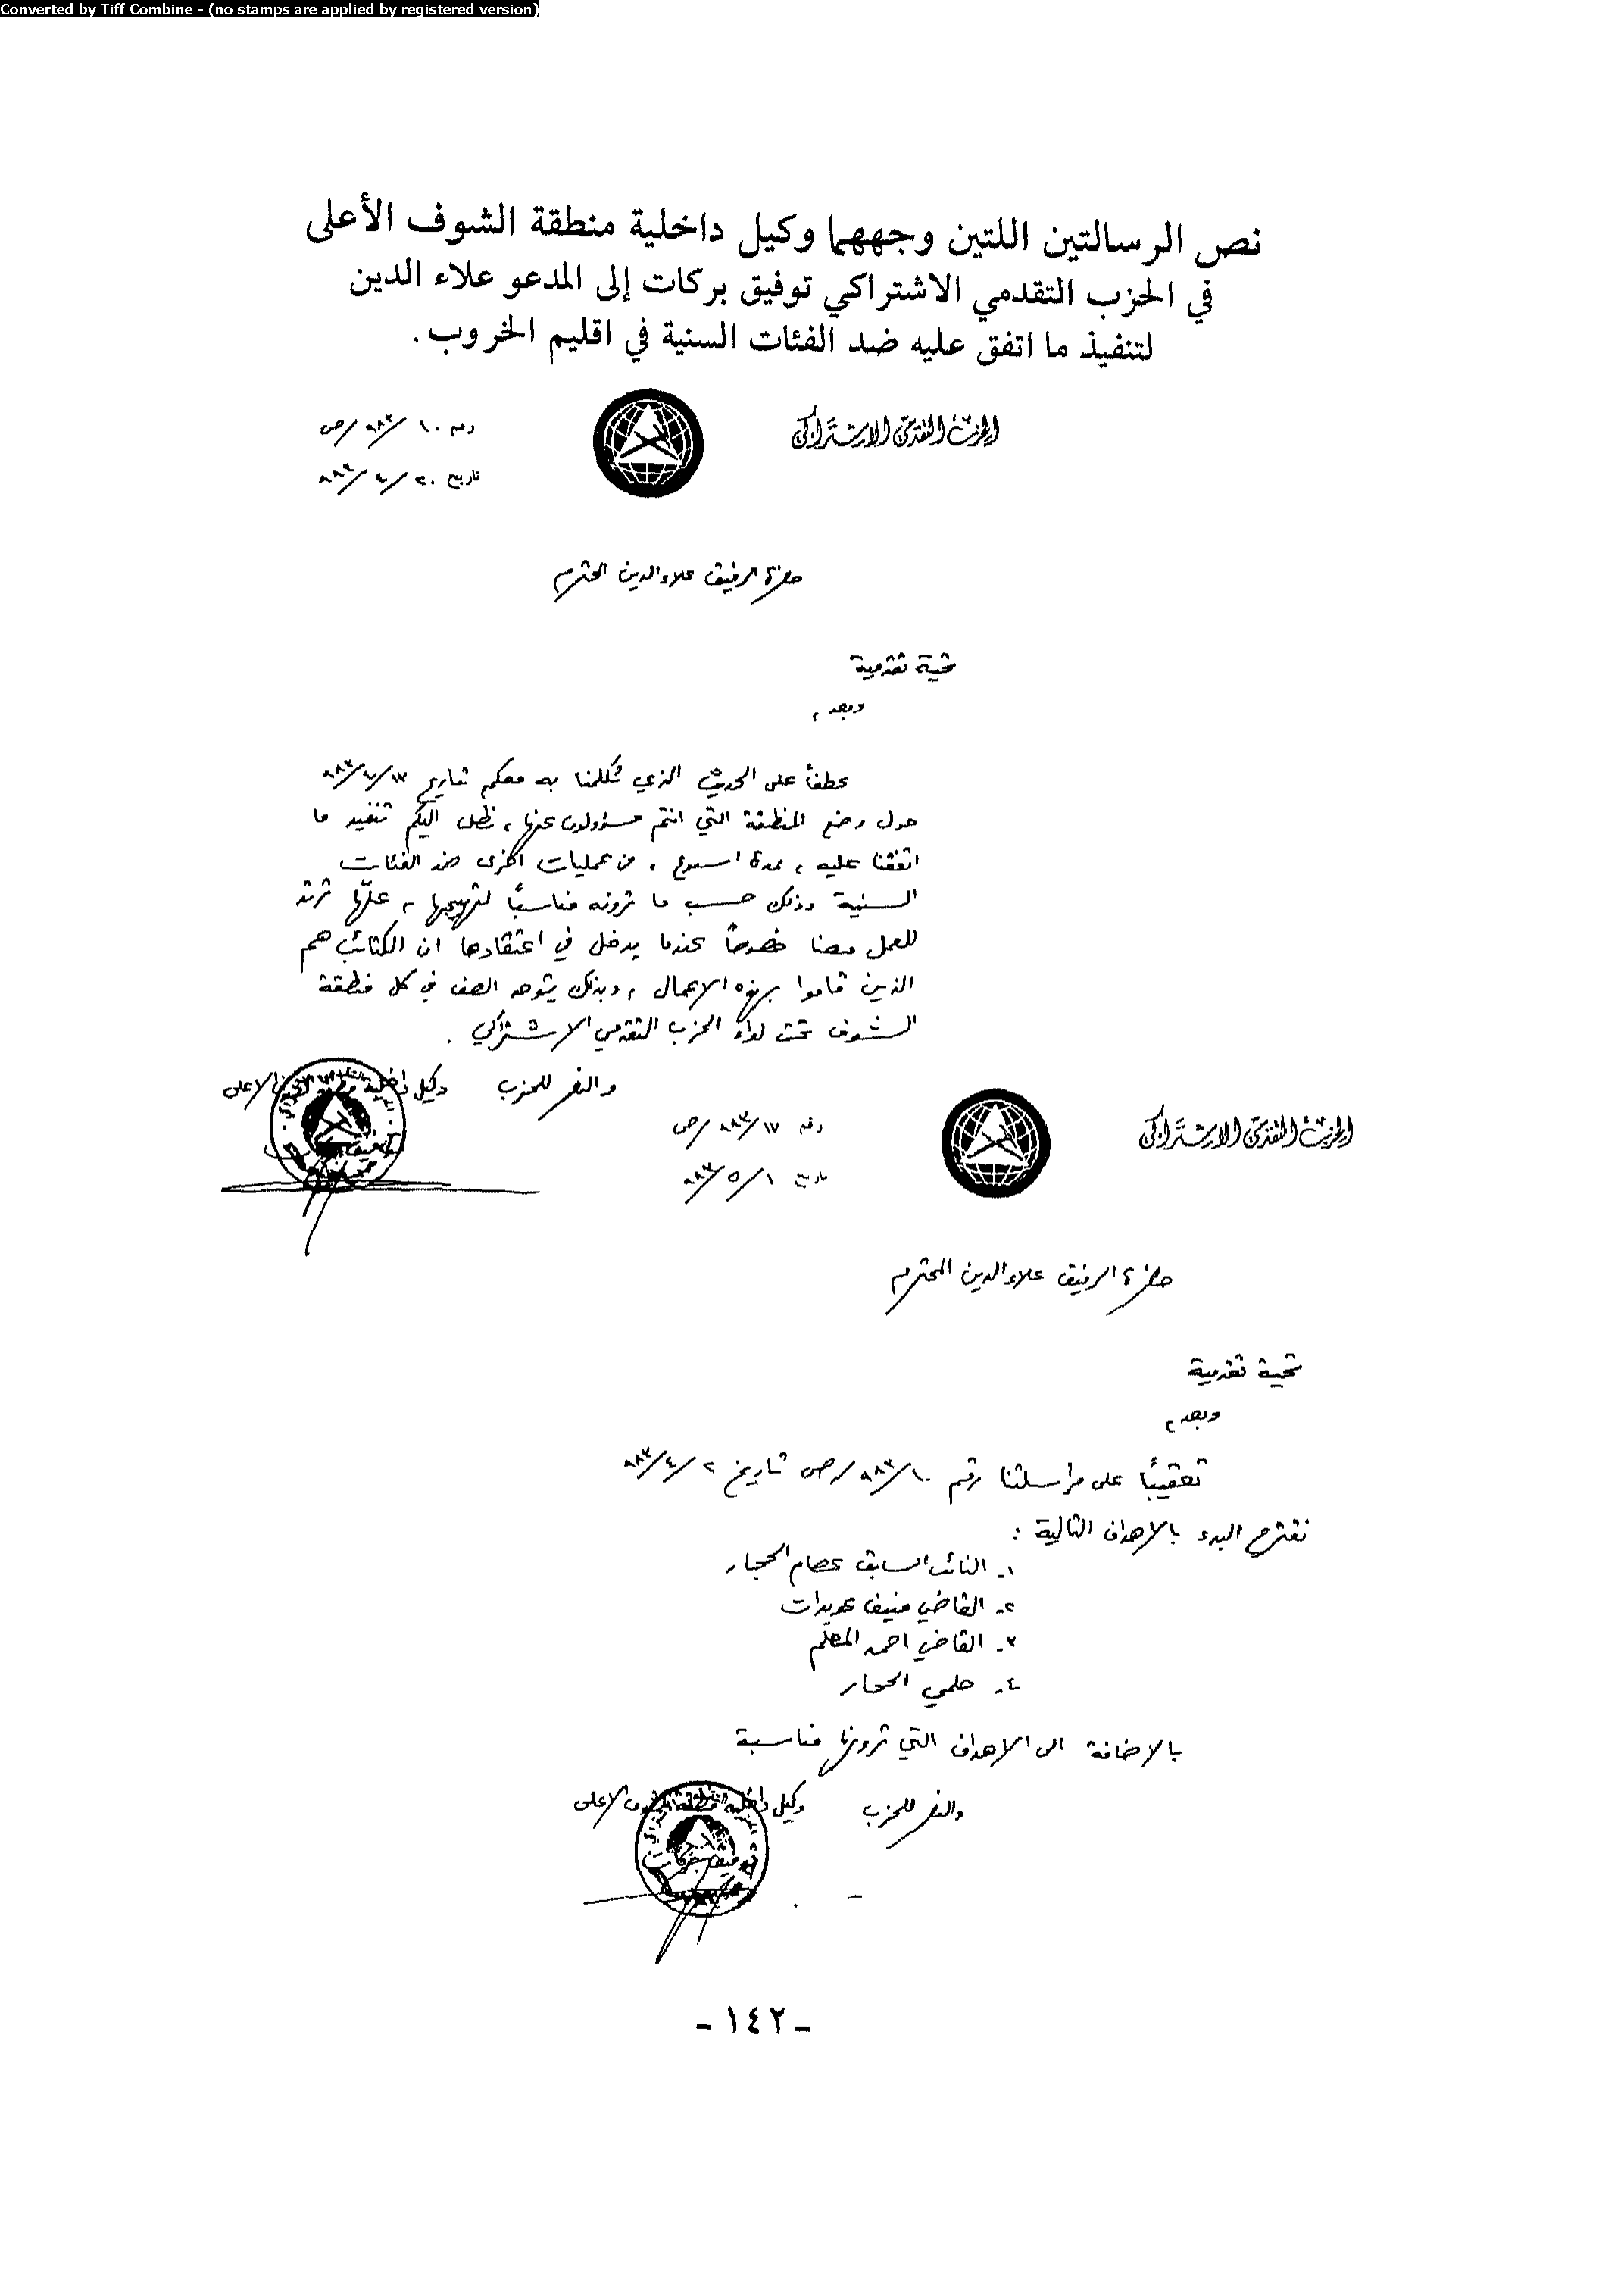 Converted by Tiff Combine - (no stamps are applied by registered version)
نص الرسالتين اللتين وجههما وكيل داخلية منطقة الشوف الأعلى
في الحزب التقدمي الاشتراكي توفيق بركات إلى المدعو علاء الدين
لتنفيذ ما اتفق عليه ضد الفئات السنية في اقليم الخروب .
الحزب التقدمي الاشتراكي
رقم ١٠/٩٨٣/ص
تاريخ ٢٠/٤/٩٨٣
حضرة الرفيق علاء الدين المحترم
تحية تقدمية
وبعد ،
عطفاً على الحديث الذي تكلمنا به معكم تاريخ ١٣/٤/٩٨٣
حول وضع المنطقة التي انتم مسؤولون عنها ، نطلب اليكم تنفيذ ما
اتفقنا عليه ، بمدة اسبوع ، من عمليات اخرى ضد الفئات
السنية وذلك حسب ما ترونه مناسباً لتهييجها ، علّها ترتد
للعمل معنا خصوصاً عندما يدخل في اعتقادها ان الكتائب هم
الذين قاموا بهذه الاعمال ، وبذلك يتوحد الصف في كل منطقة
الشوف تحت لواء الحزب التقدمي الاشتراكي .
والنصر للحزب وكيل داخلية منطقة الشوف الاعلى
الحزب التقدمي الاشتراكي
رقم ١٧/٩٨٣/ص
تاريخ ١/٥/٩٨٣
حضرة الرفيق علاء الدين المحترم
تحية تقدمية
وبعد ،
تعقيباً على مراسلتنا رقم ١٠/٩٨٣/ص تاريخ ٢٠/٤/٩٨٣
نقترح البدء بالاهداف التالية :
١- النائب السابق عصام الحجار
٢- القاضي منيف عويدات
٣- القاضي احمد المعلّم
٤- حلمي الحجار
بالاضافة الى الاهداف التي ترونها مناسبة
والنصر للحزب وكيل داخلية منطقة الشوف الاعلى
توفيق بركات
- ١٤٢ -